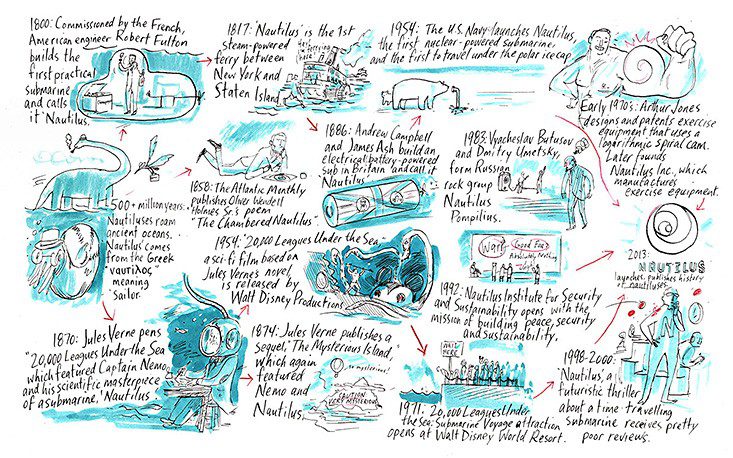 1800: Commissioned by the French,
American engineer Robert Fulton
builds the
first practical
submarine
and calls
it 'Nautilus.'
1817: 'Nautilus' is the 1st
steam-powered
ferry between
New York and
Staten Island.
1954: The U.S. Navy launches Nautilus,
the first nuclear-powered submarine,
and the first to travel under the polar ice cap.
Early 1970s: Arthur Jones
designs and patents exercise
equipment that uses a
logarithmic spiral cam.
Later founds
Nautilus Inc., which
manufactures
exercise equipment.
1886: Andrew Campbell
and James Ash build an
electrical battery-powered
sub in Britain and call it
Nautilus
1983: Vyacheslav Butusov
and Dmitry Umetsky,
form Russian
rock group
Nautilus
Pompilius.
1858: The Atlantic Monthly
publishes Oliver Wendell
Holmes Sr.'s poem
"The Chambered Nautilus".
500+ million years:
Nautiluses roam
ancient oceans.
'Nautilus' comes
from the Greek
ναυτίλος,
meaning
sailor.
1954: '20,000 Leagues Under the Sea,'
a sci-fi film based on
Jules Verne's novel,
is released by
Walt Disney Productions
War!
Good For
Absolutely Nothing
2013:
NAUTILUS
launches, publishes history
of nautiluses.
1992: Nautilus Institute for Security
and Sustainability opens with the
mission of building peace, security
and sustainability.
1870: Jules Verne pens
"20,000 Leagues Under the Sea"
which featured Captain Nemo
and his scientific masterpiece
of a submarine, 'Nautilus.'
1874: Jules Verne publishes a
Sequel, 'The Mysterious Island,'
which again
featured
Nemo and
Nautilus.
so mysterious!
CAUTION
VERY MYSTERIOUS
WAIT
HERE
1971: '20,000 Leagues Under
the Sea: Submarine Voyage' attraction
opens at Walt Disney World Resort.
1998-2000:
'Nautilus', a
futuristic thriller
about a time travelling
submarine receives pretty
poor reviews.